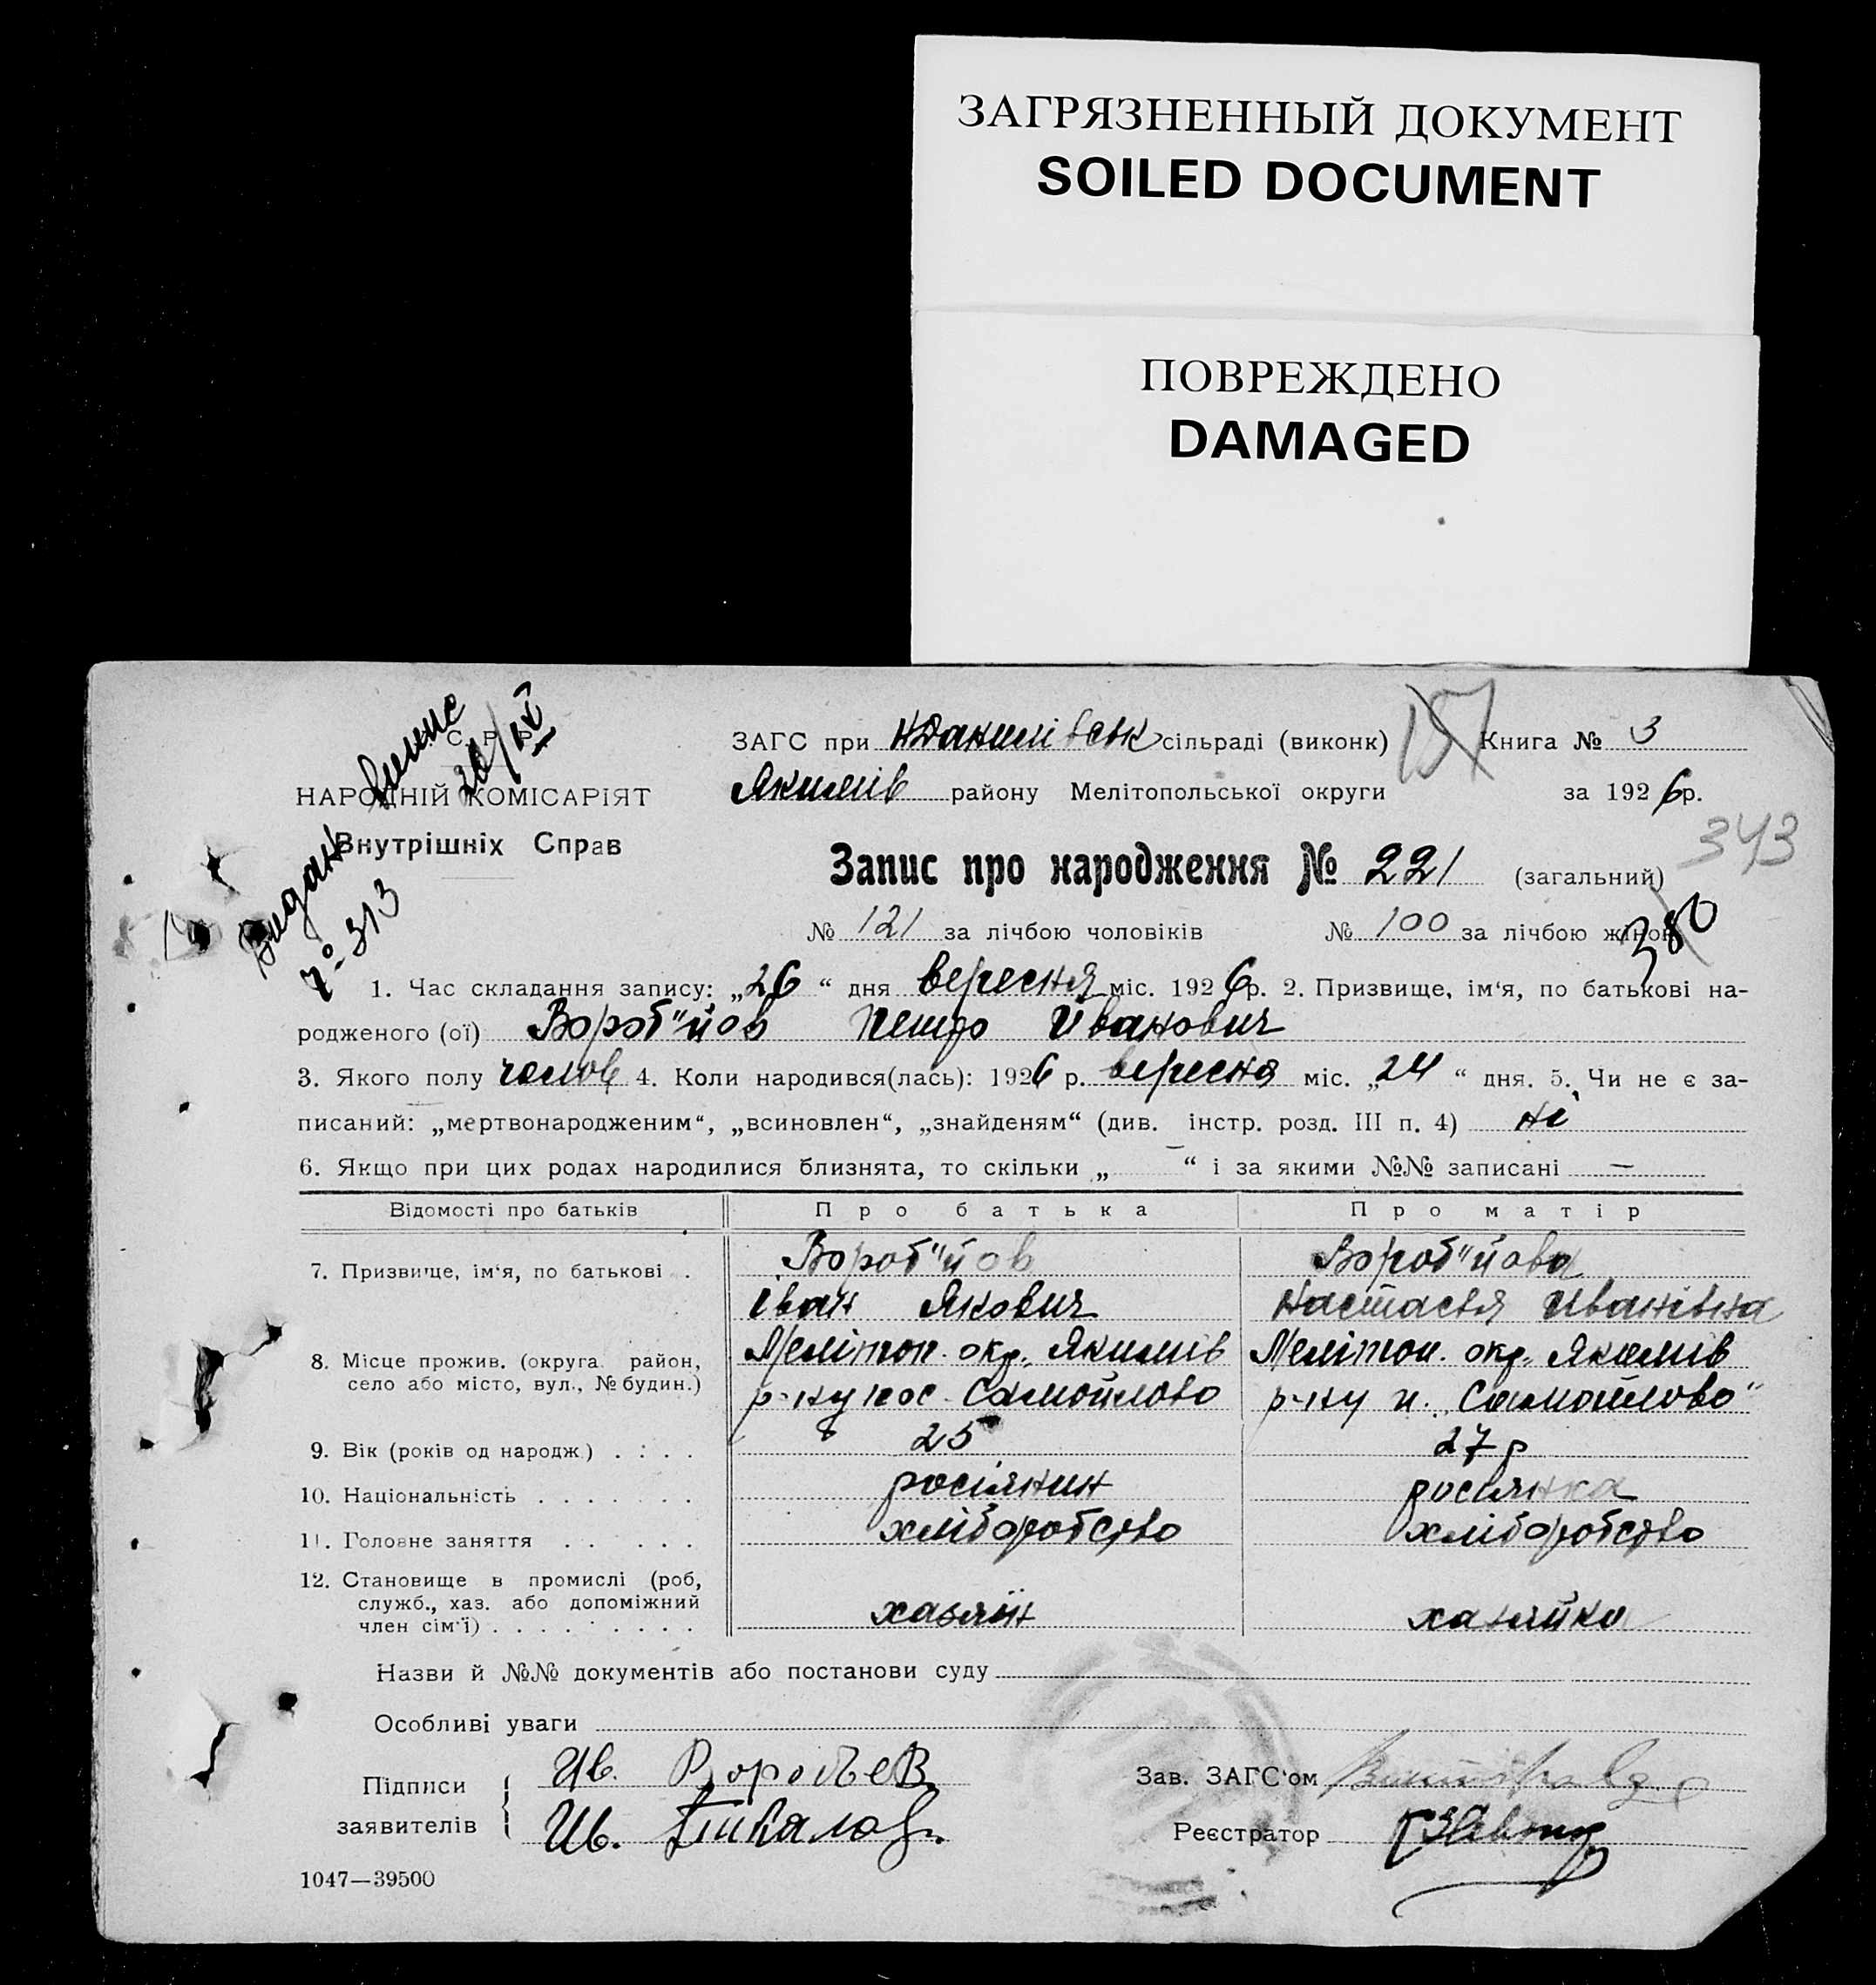 ЗАГРЯЗНЕННЫЙ ДОКУМЕНТ
SOILED DOCUMENT
ПОВРЕЖДЕНО
DAMAGED
Видан випис
№ 313 20/IV
С. Р. Р.
НАРОДНІЙ КОМІСАРІЯТ
Внутрішніх Справ
ЗАГС при сільраді (виконк) 157 Книга № 3
Якимів району Мелітопольської округи за 1926 р.
343
Запис про народження № 221 (загальний)
№ 121 за лічбою чоловіків № 100 за лічбою жінок
380
1. Час складання запису: „26“ дня вересня міс. 1926 р. 2. Призвище, ім‘я, по батькові на-
родженого (ої) Вороб"йов Петро Иванович
3. Якого полу чолов 4. Коли народився(лась): 1926 р. вересня міс. „24“ дня. 5. Чи не є за-
писаний: „мертвонародженим“, „всиновлен“, „знайденям“ (див. інстр. розд. III п. 4) ні
6. Якщо при цих родах народилися близнята, то скільки „ — “ і за якими №№ записані —
Відомості про батьків Про батька Про матір
7. Призвище, ім‘я, по батькові . Вороб"йов Вороб"йова
Іван Якович Настасья Иванівна
8. Місце прожив. (округа район, Мелітоп. окр., Якимів Мелітоп. окр., Якимів
село або місто, вул., № будин.) р-ну пос. Самойлово р-ну п. „Самойлово"
9. Вік (років од народж.) . : . . 25 27 р
10. Національність . . . . . . . росіянин росіянка
11. Головне заняття . . . . . хліборобство хліборобство
12. Становище в промислі (роб,
служб., хаз. або допоміжний
член сім‘ї) . . . . . . . . . хазяїн хазяйка
Назви й №№ документів або постанови суду
Особливі уваги
Підписи Ив. Воробьев Зав. ЗАГС‘ом
заявителів Ив. Реєстратор
1047—39500